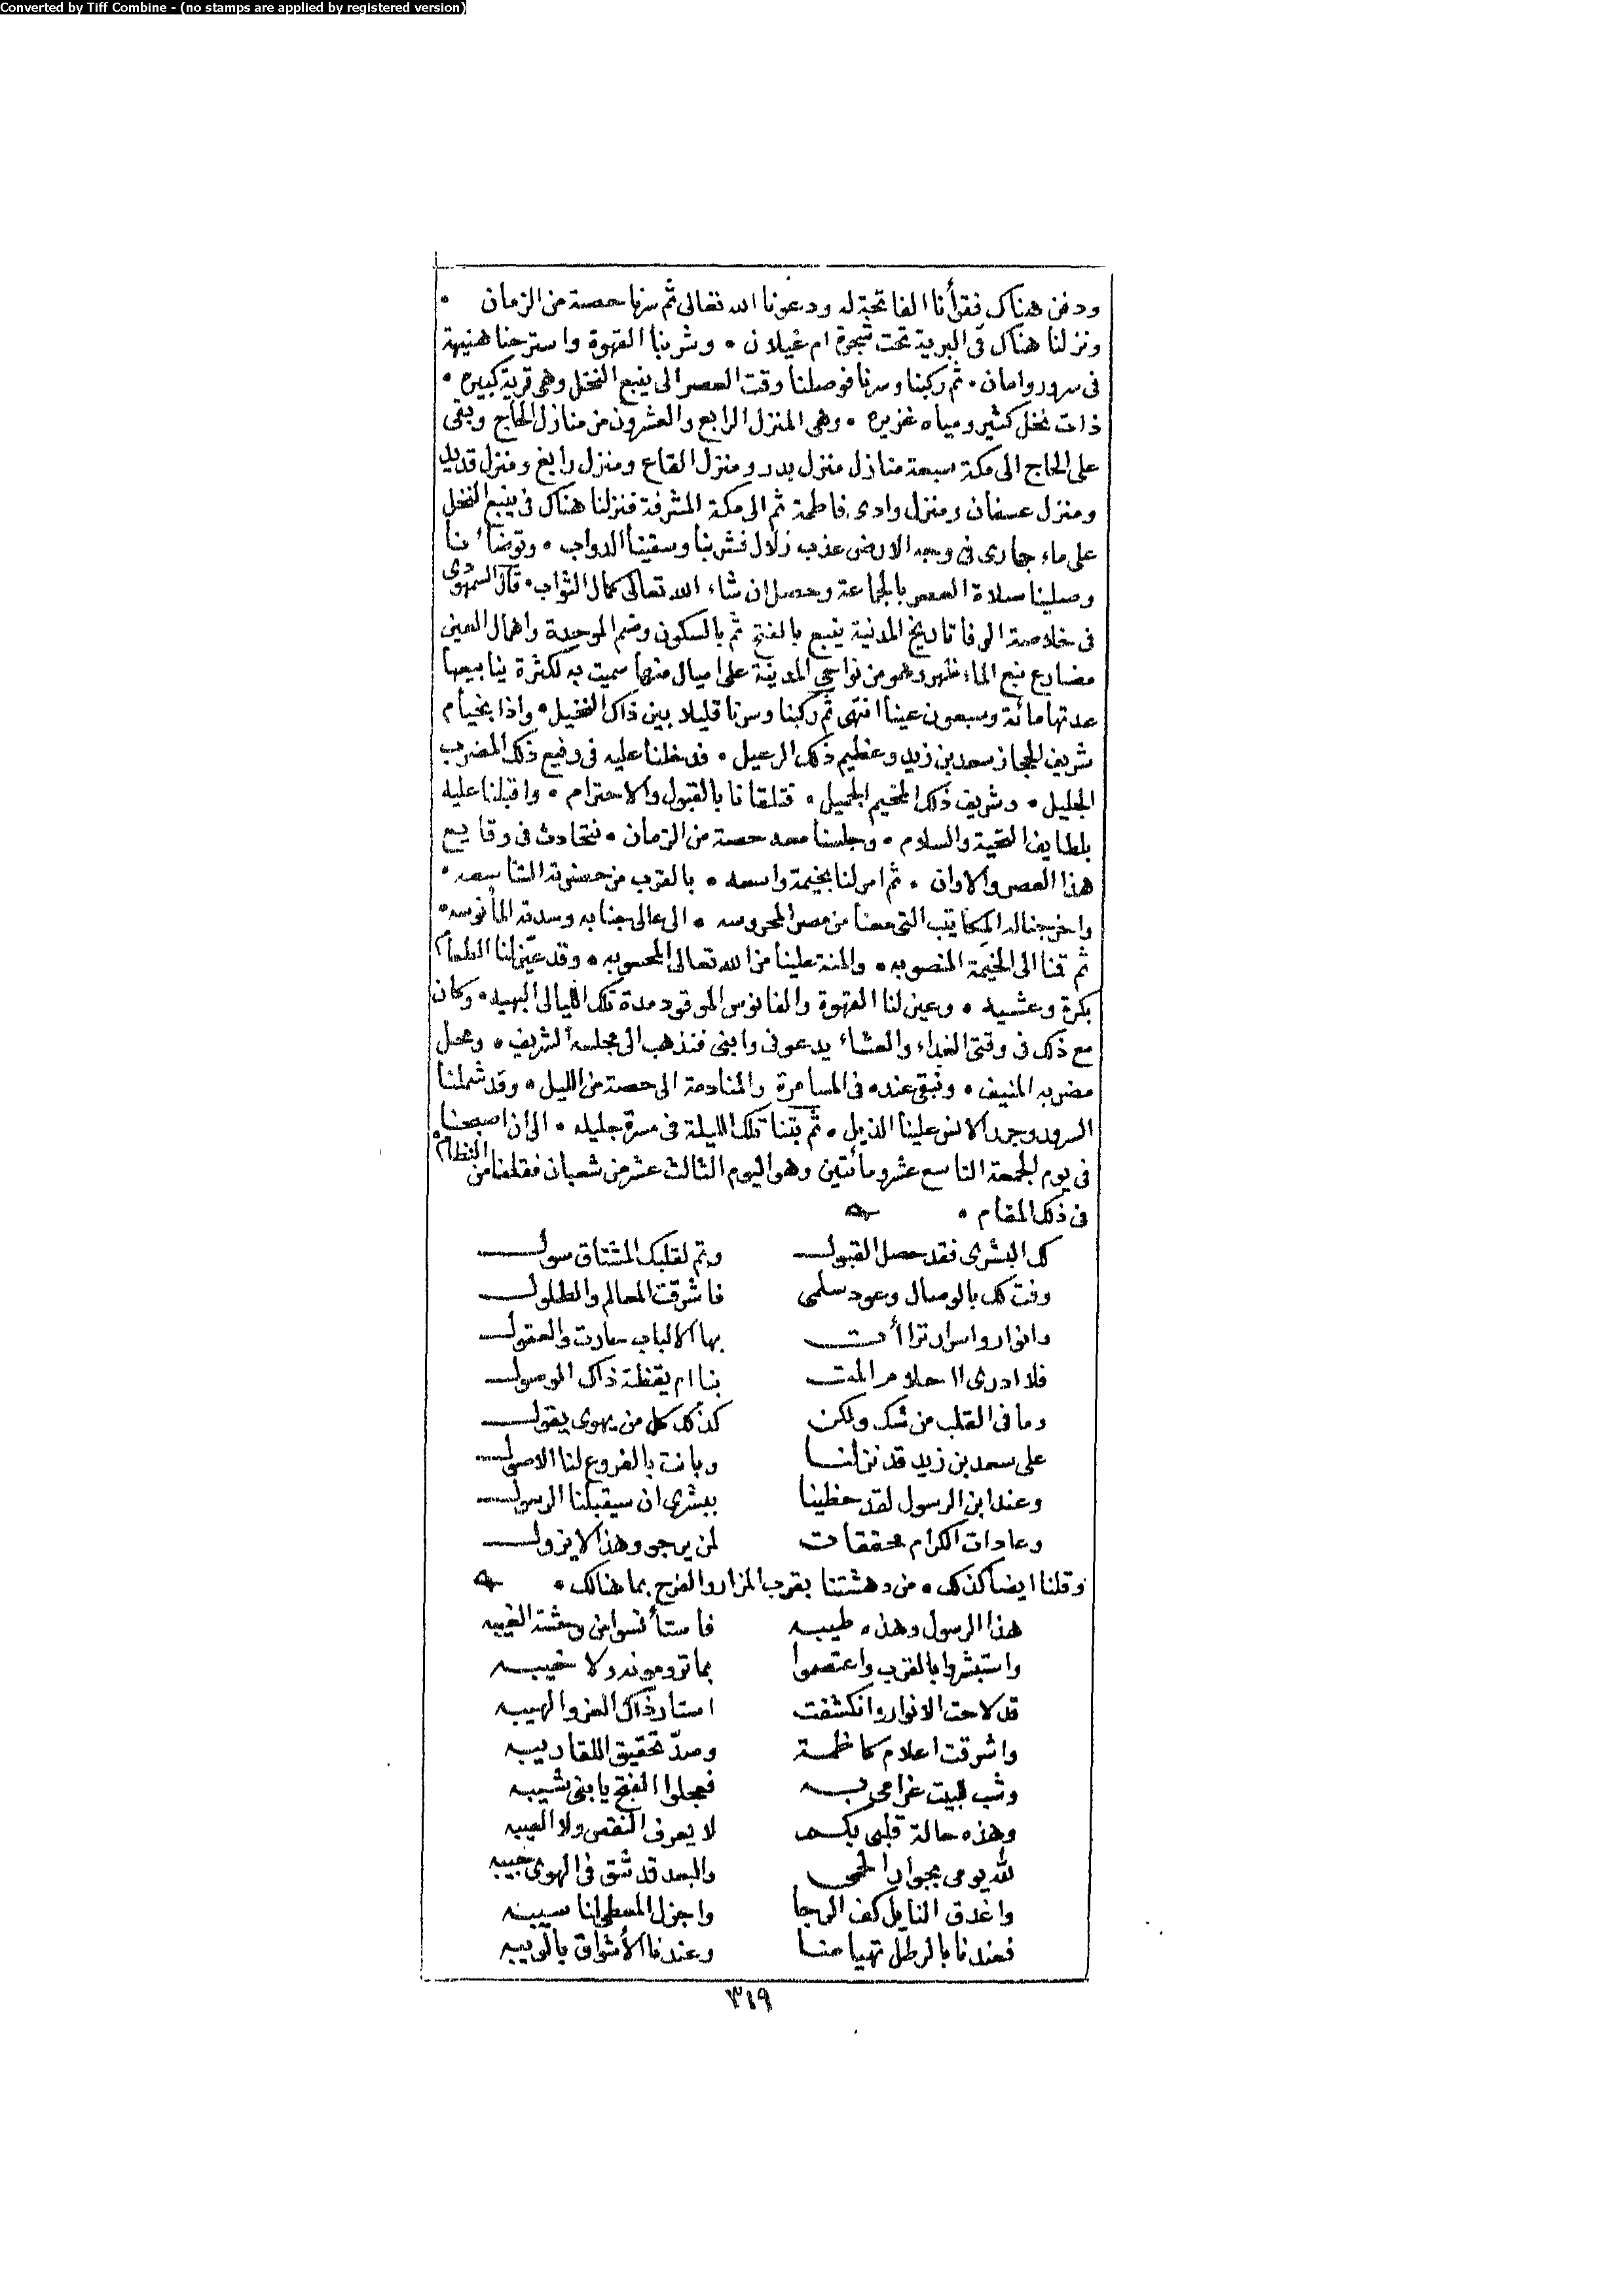 Converted by Tiff Combine - (no stamps are applied by registered version)
ودفن هناك فقرأنا الفاتحة له ودعونا الله تعالى ثم سرنا حصة من الزمان •
ونزلنا هناك في البرية تحت شجرة ام غيلان • وشربنا القهوة واسترحنا هنيهة
في سرور وامان • ثم ركبنا وسرنا فوصلنا وقت العصر الى ينبع النخل وهي قرية كبيره •
ذات نخل كثير ومياه غزيره • وهي المنزل الرابع والعشرون من منازل الحاج وبقى
على الحاج الى مكة سبعة منازل منزل بدر ومنزل القاع ومنزل رابغ ومنزل قديد
ومنزل عسفان ومنزل وادى فاطمة ثم الى مكة المشرفة فنزلنا هناك في ينبع النخل
على ماء جارى في وجه الارض عذب زلال فشربنا وسقينا الدواب • وتوضأنا
وصلينا صلاة العصر بالجماعة وحصل ان شاء الله تعالى كمال الثواب • قال السمهودى
في خلاصة الوفا تاريخ المدينة ينبع بالفتح ثم بالسكون وضم الموحدة واهمال العين
مضارع نبع الماء ظهر وهو من نواحي المدينة على اميال منها سميت به لكثرة ينابيعها
عدتها مائة وسبعون عينا انتهى ثم ركبنا وسرنا قليلا بين ذاك النخيل • واذا بخيام
شريف الحجاز سعد بن زيد وعظيم ذلك الرعيل • فدخلنا عليه في رفيع ذلك المضرب
الجليل • وشريف ذلك المخيم الجميل • فتلقانا بالقبول والاحترام • واقبلنا عليه
بلطايف التحية والسلام • وجلسنا معه حصة من الزمان • نتحادث في وقايع
هذا العصر والاوان • ثم امر لنا بخيمة واسعه • بالقرب من حضرته الشاسعه •
واخرجنا له المكاتيب التي معنا من مصر المحروسه • الى عالى جنابه وسدته المأنوسه •
ثم قمنا الى الخيمة المنصوبه • والمنة علينا من الله تعالى المحسوبه • وقد عيّن لنا الطعام
بكرة وعشيه • وعين لنا القهوة والفانوس الموقود مدة تلك الليالى البهيه • وكان
مع ذلك في وقتى الغداء والعشاء يدعوني وابنى فنذهب الى مجلسه الشريف • ومحل
مضربه المنيف • ونبقى عنده في المسامرة والمنادمة الى حصة من الليل • وقد شملنا
السرور وجر الانس علينا الذيل • ثم بتنا تلك الليلة في مسرة جليله • الى ان اصبحنا
في يوم الجمعة التاسع عشر ومائتين وهو اليوم الثالث عشر من شعبان فقلنا من النظام
في ذلك المقام •
لك البشرى فقد حصل القبول وتم لقلبك المشتاق سول
وفت لك بالوصال وعود سلمى فاشرقت المعالم والطلول
وانوار واسرار تراأت بها الالباب حارت والعقول
فلا ادرى ااحلام المت بنا ام يقظة ذاك الوصول
وما في القلب من شك ولكن كذلك كل من يهوى يقول
على سعد بن زيد قد نزلنا وبانت بالفروع لنا الاصول
وعند ابن الرسول لقد حظينا ببشرى ان سيقبلنا الرسول
وعادات الكرام محققات لمن يرجو وهذا لا يزول
وقلنا ايضا كذلك • من دهشتنا بقرب المزار والفرح بما هنالك •
هذا الرسول وهذه طيبه فاستأنسوا من وحشة الغيبه
واستبشروا بالقرب واعتصموا بما ترومونه ولا خيبه
قد لاحت الانوار وانكشفت استار ذاك العز والهيبه
واشرقت اعلام كاظمة وصدّ تحقيق اللقا ريبه
وشب لبيت غرامى به فعجلوا الفتح يا بنى شيبه
وهذه حالة قلبى بكم لا يعرف النقص ولا العيبه
لله يومى بجوار الحمى والبعد قد شق في الهوى جيبه
واغدق النايل كف الرجا واجزل المعطى لنا سيبه
فعندنا بالرطل تهيامنا وعندنا الأشواق بالويبه
٣١٩